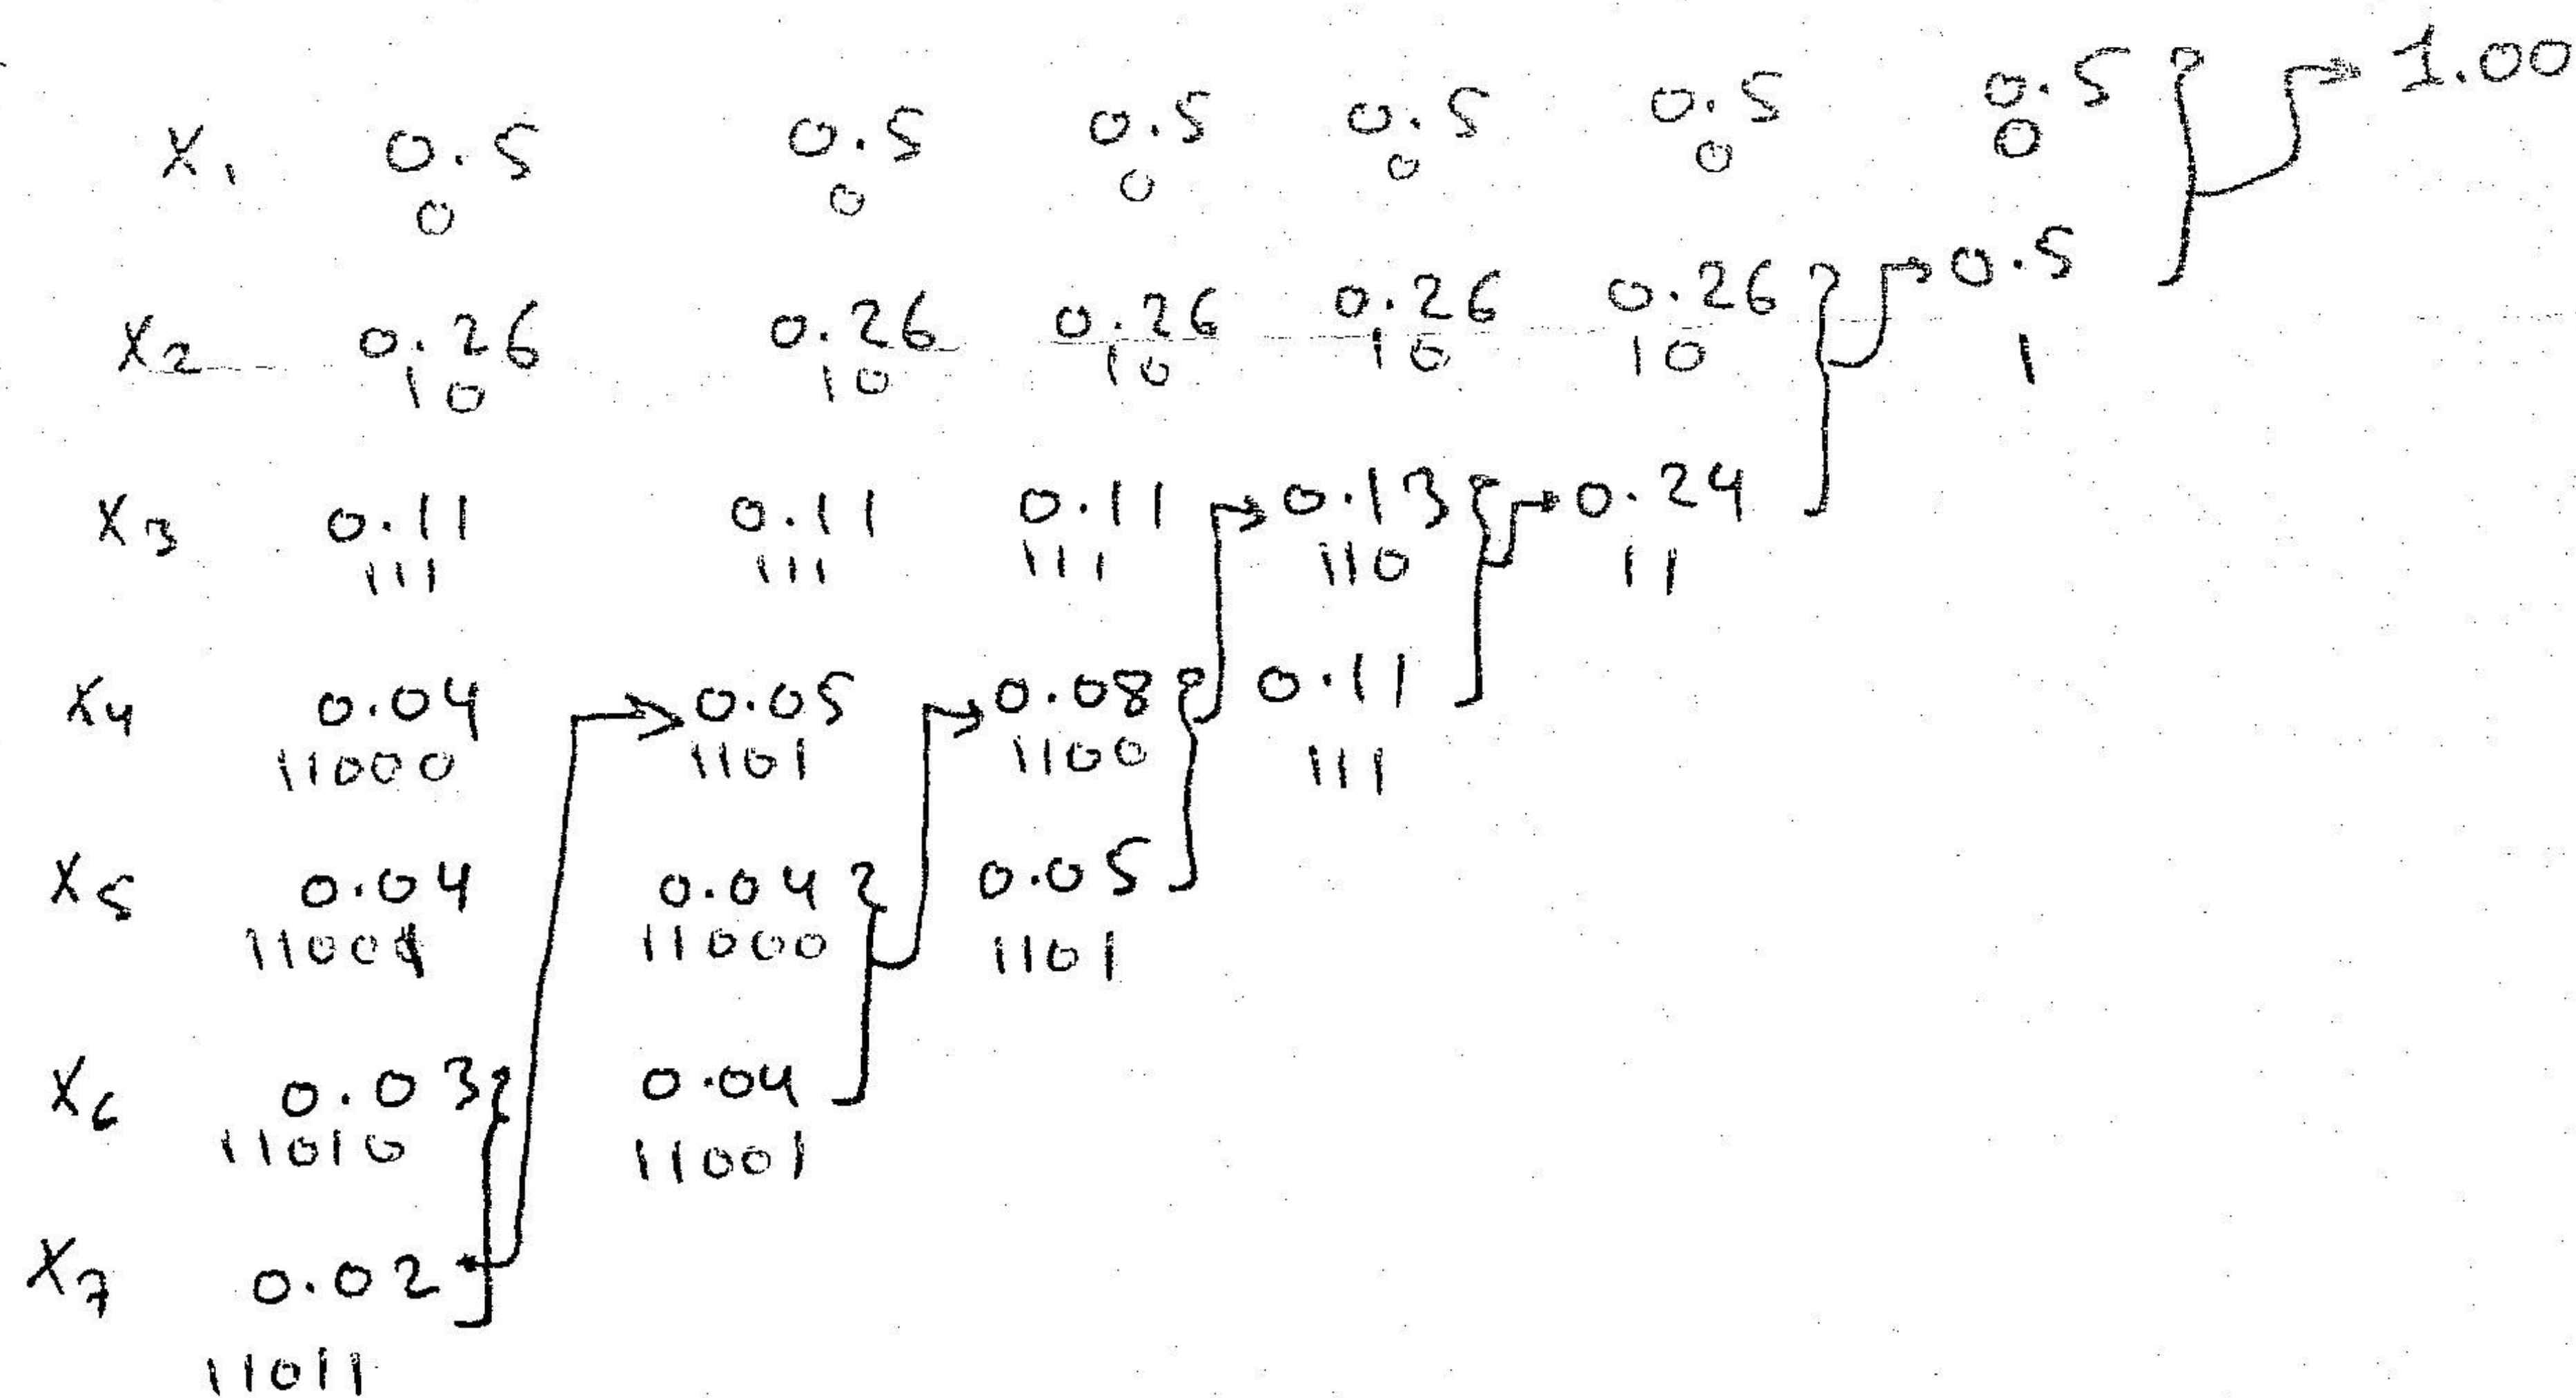 X1 0.5 0.5 0.5 0.5 0.5 0.5 → 1.00
0 0 0 0 0 0
X2 0.26 0.26 0.26 0.26 0.26 → 0.5
10 10 10 10 10 1
X3 0.11 0.11 0.11 → 0.13 → 0.24
111 111 111 110 11
X4 0.04 → 0.05 → 0.08 0.11
11000 1101 1100 111
X5 0.04 0.04 0.05
11001 11000 1101
X6 0.03 0.04
11010 11001
X7 0.02
11011